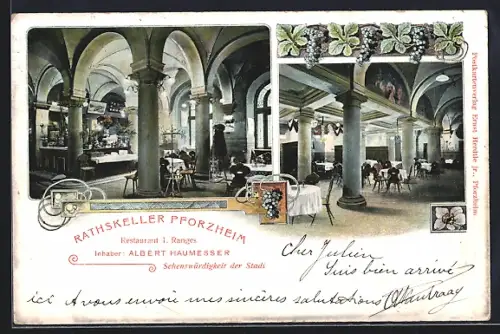 RATHSKELLER PFORZHEIM
Restaurant I. Ranges
Inhaber: ALBERT HAUMESSER
Sehenswürdigkeit der Stadt
Postkartenverlag Ernst Hendle jr., Pforzheim
Cher Julien
Suis bien arrivé
ici et vous envoie mes sincères salutations